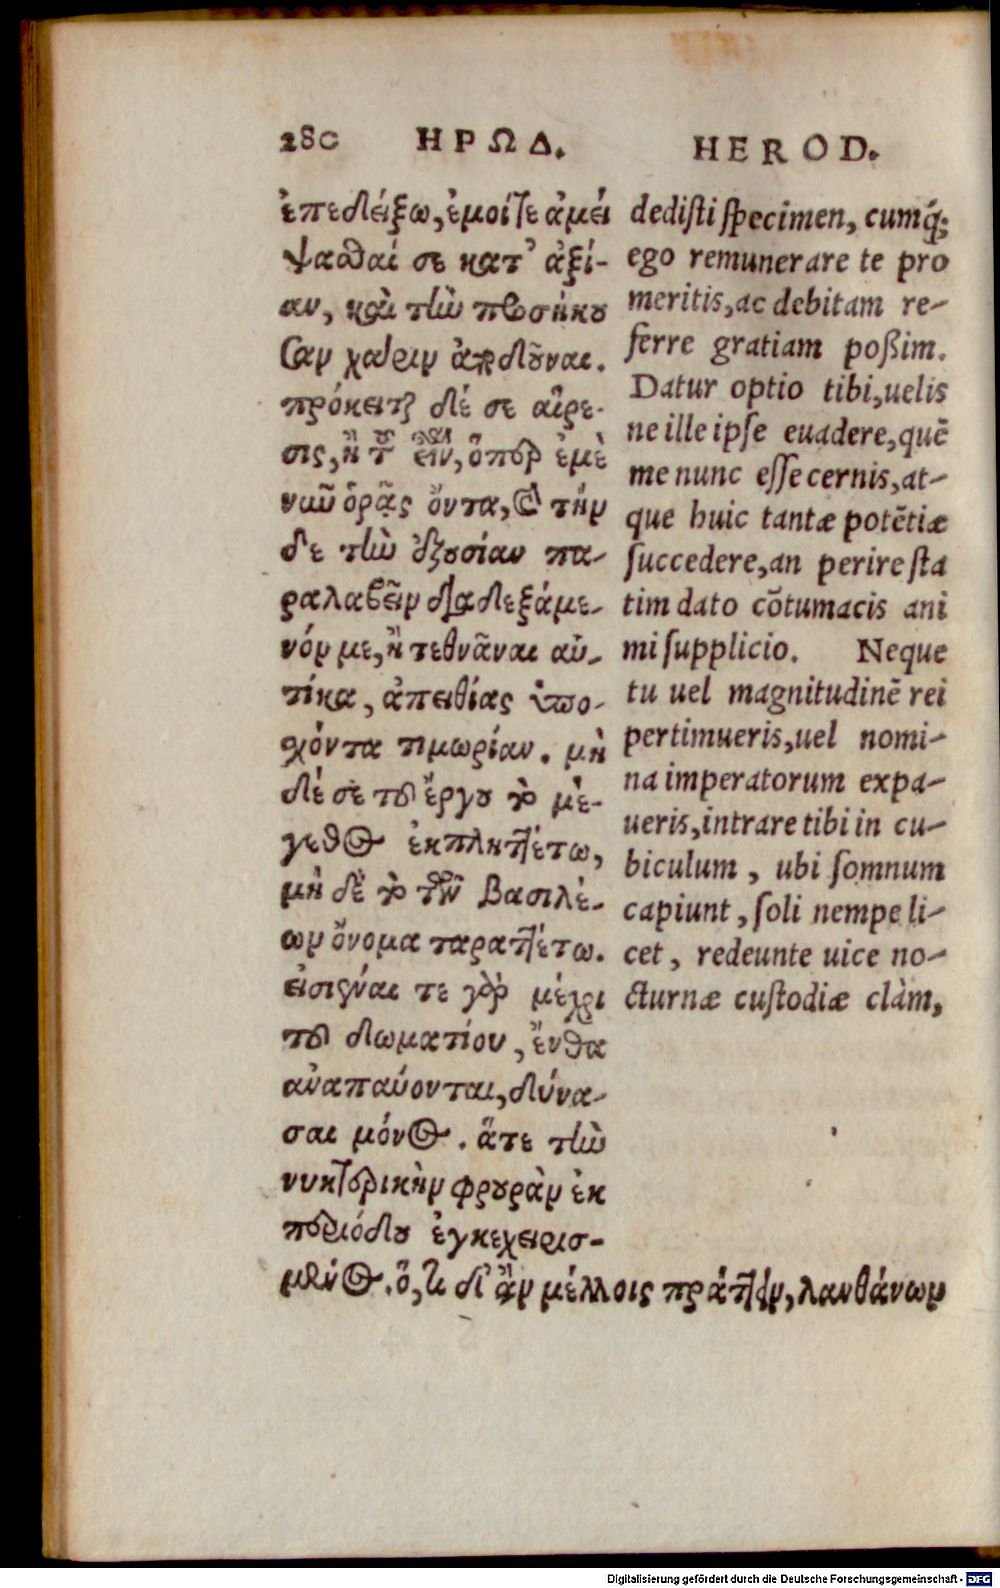 280 ΗΡΩΔ.
ἐπεδείξω, ἐμοί τε ἀμεί
ψασθαί σε κατ' ἀξί-
αν, καὶ τὴν προσήκου
σαν χάριν ἀποδοῦναι.
πρόκειται δέ σε αἵρε-
σις, ἢ τοῦτον εἶναι, ὅπερ ἐμὲ
νῦν ὁρᾷς ὄντα, καὶ τήν
δε τὴν ἐξουσίαν πα-
ραλαβεῖν διαδεξάμε-
νόν με, ἢ τεθνᾶναι αὐ-
τίκα, ἀπειθίας ὑπο-
χόντα τιμωρίαν. μὴ
δέ σε τοῦ ἔργου τὸ μέ-
γεθος ἐκπληττέτω,
μὴ δὲ τὸ τῶν βασιλέ-
ων ὄνομα ταραττέτω.
εἰσιέναι τε γὰρ μέχρι
τοῦ δωματίου, ἔνθα
ἀναπαύονται, δύνα-
σαι μόνος. ἅτε τὴν
νυκτερικὴν φρουρὰν ἐκ
περιόδου ἐγκεχειρισ-
μένος. ὅ, τι δ' ἂν μέλλοις πράττειν, λανθάνων
HEROD.
dedisti specimen, cumq́;
ego remunerare te pro
meritis, ac debitam re-
ferre gratiam poßim.
Datur optio tibi, uelis
ne ille ipse euadere, quē
me nunc esse cernis, at-
que huic tantæ potētiæ
succedere, an perire sta
tim dato cōtumacis ani
mi supplicio. Neque
tu uel magnitudinē rei
pertimueris, uel nomi-
na imperatorum expa-
ueris, intrare tibi in cu-
biculum, ubi somnum
capiunt, soli nempe li-
cet, redeunte uice no-
cturnæ custodiæ clàm,
Digitalisierung gefördert durch die Deutsche Forschungsgemeinschaft - DFG